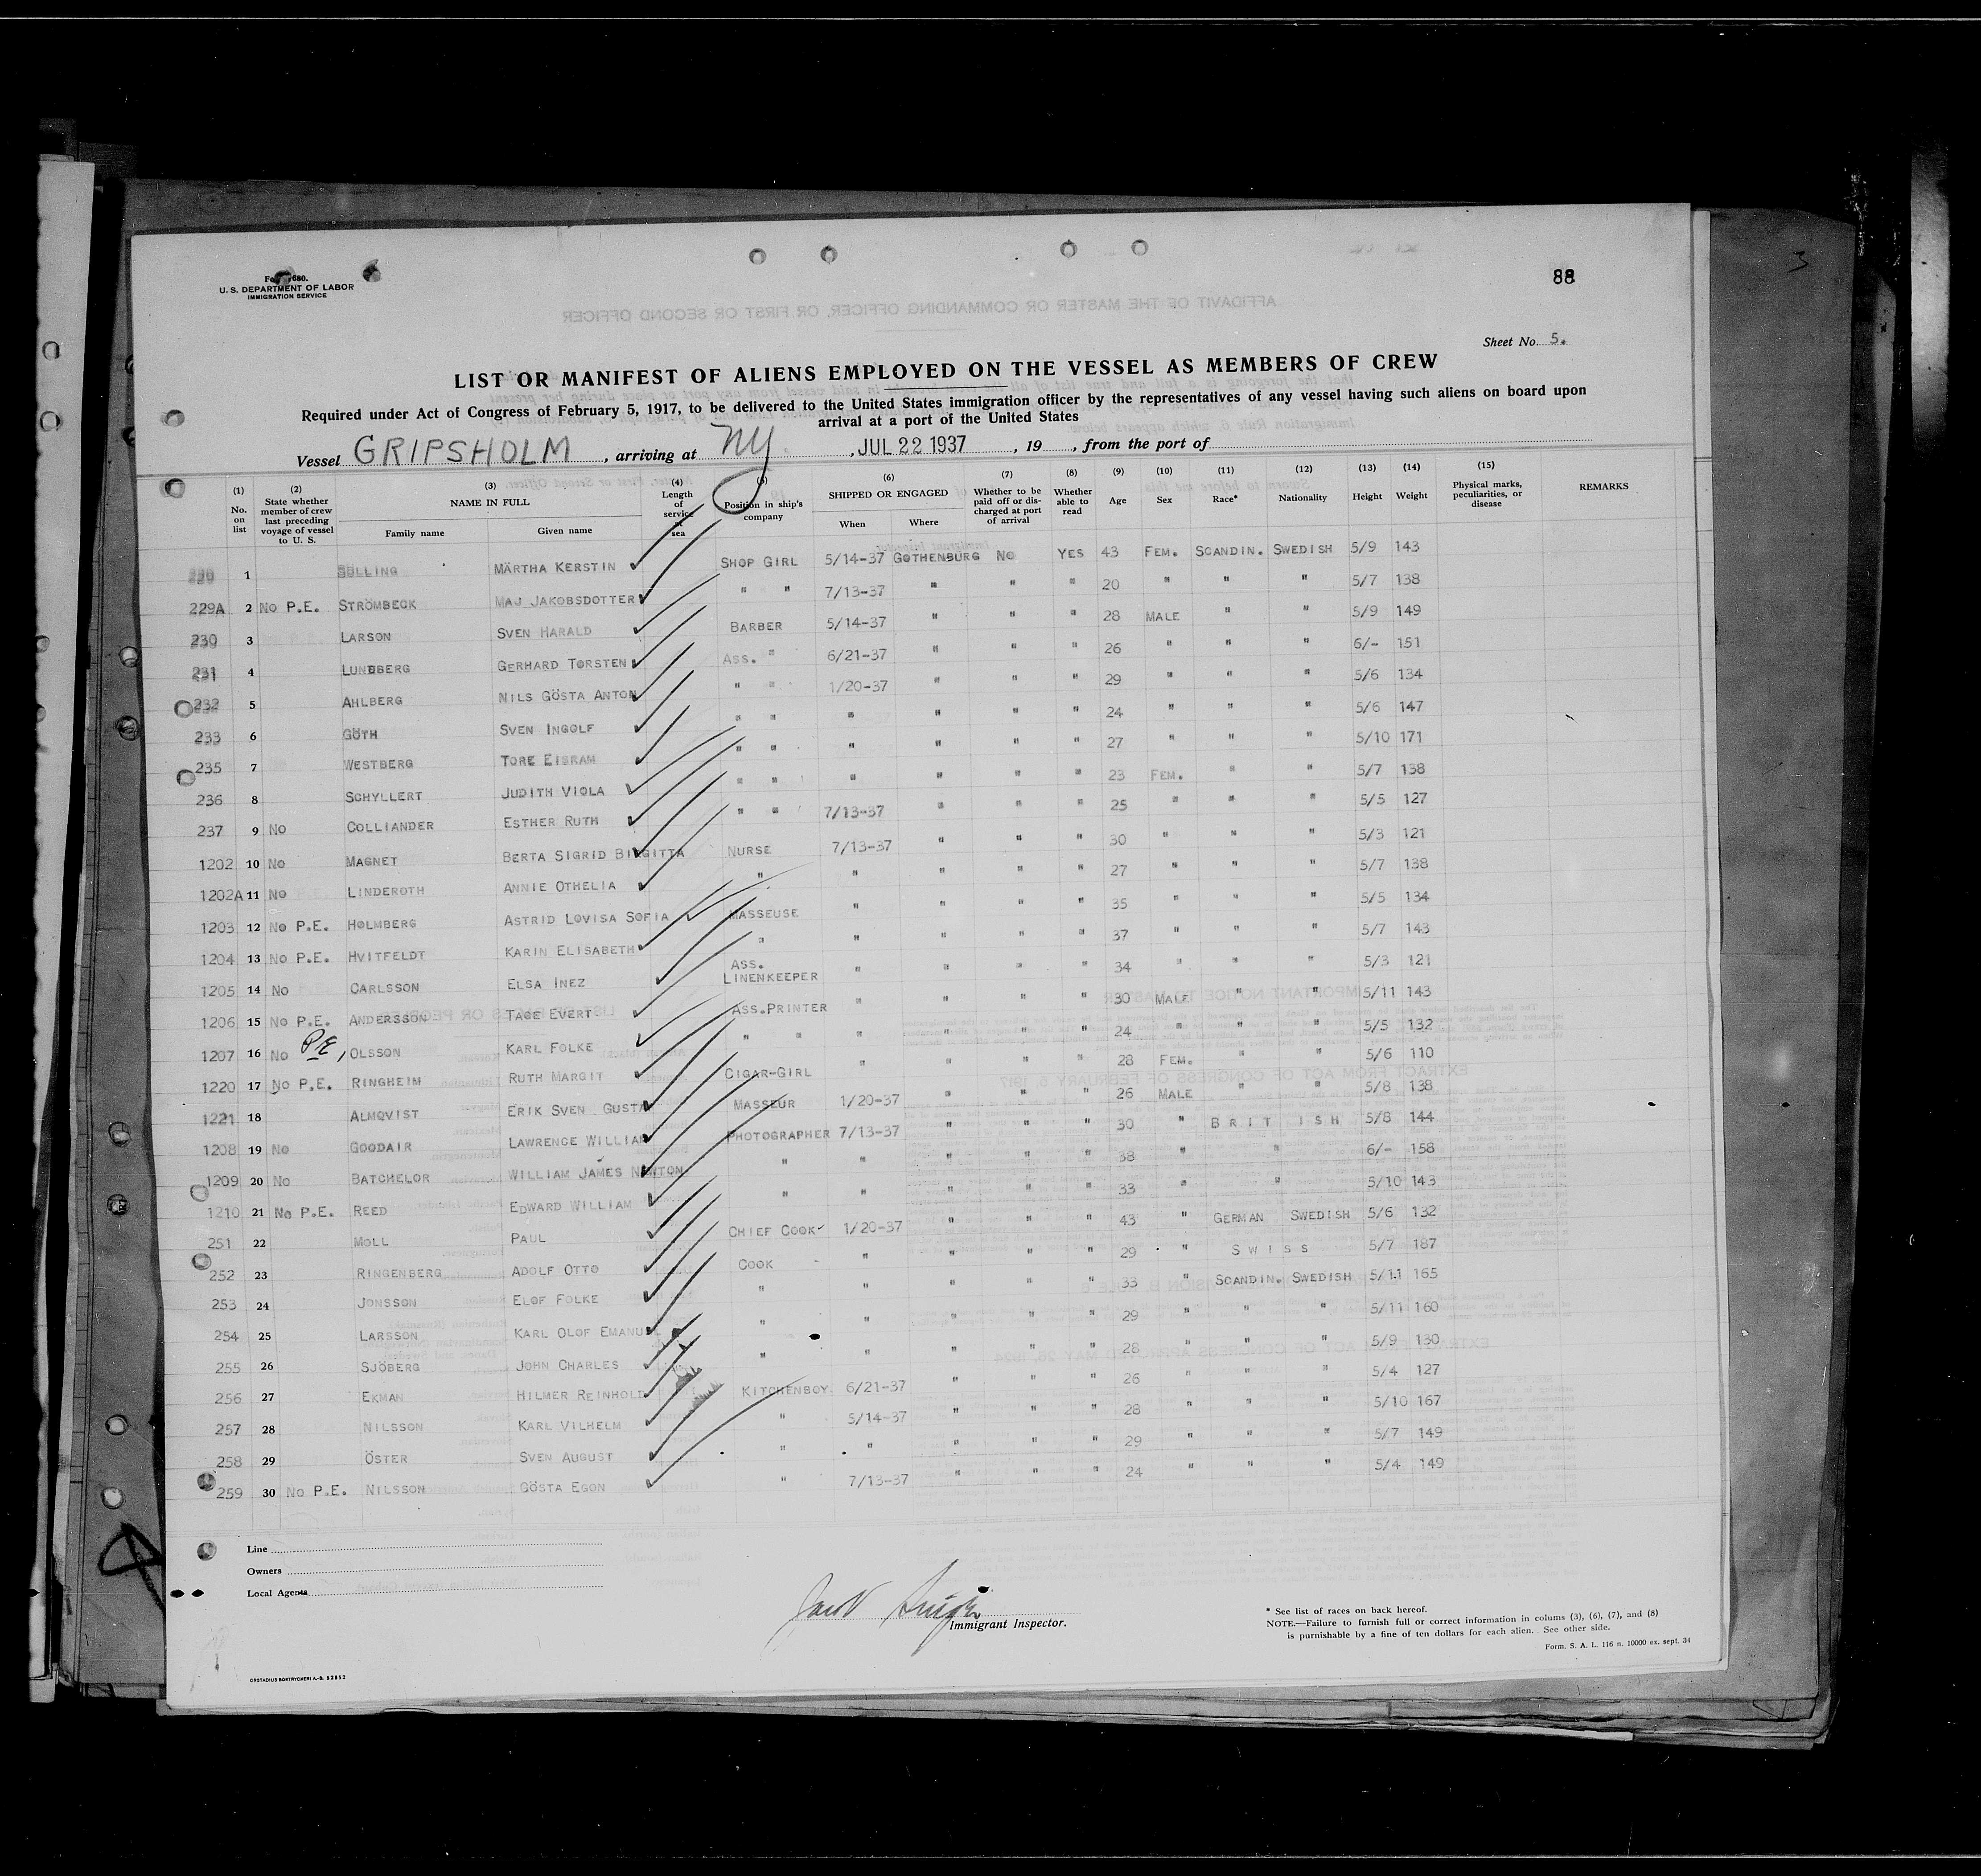 88
U. S. DEPARTMENT OF LABOR
IMMIGRATION SERVICE
Sheet No. 5.
LIST OR MANIFEST OF ALIENS EMPLOYED ON THE VESSEL AS MEMBERS OF CREW
Required under Act of Congress of February 5, 1917, to be delivered to the United States immigration officer by the representatives of any vessel having such aliens on board upon
arrival at a port of the United States
Vessel GRIPSHOLM, arriving at NY., JUL 22 1937, 19, from the port of
(1) No. on list (2) State whether member of crew last preceding voyage of vessel to U. S. (3) NAME IN FULL Family name Given name (4) Length of service at sea (5) Position in ship's company (6) SHIPPED OR ENGAGED When Where (7) Whether to be paid off or discharged at port of arrival (8) Whether able to read (9) Age (10) Sex (11) Race* (12) Nationality (13) Height (14) Weight (15) Physical marks, peculiarities, or disease REMARKS
1 MÄRTHA KERSTIN SHOP GIRL 5/14-37 GOTHENBURG NO YES 43 FEM. SCANDIN. SWEDISH 5/9 143
229A 2 NO P.E. STRÖMBECK MAJ JAKOBSDOTTER " " 7/13-37 " " " 20 " " " 5/7 138
230 3 LARSON SVEN HARALD BARBER 5/14-37 " " " 28 MALE " " 5/9 149
231 4 LUNDBERG GERHARD TORSTEN ASS. " 6/21-37 " " " 26 " " " 6/- 151
232 5 AHLBERG NILS GÖSTA ANTON " " 1/20-37 " " " 29 " " " 5/6 134
233 6 GÖTH SVEN INGOLF " " " " " " 24 " " " 5/6 147
235 7 WESTBERG TORE " " " " " " 27 " " " 5/10 171
236 8 SCHYLLERT JUDITH VIOLA " " " " " " 23 FEM. " " 5/7 138
237 9 NO COLLIANDER ESTHER RUTH " " 7/13-37 " " " 25 " " " 5/5 127
1202 10 NO MAGNET BERTA SIGRID BIRGITTA NURSE 7/13-37 " " " 30 " " " 5/3 121
1202A 11 NO LINDEROTH ANNIE OTHELIA " " " " " 27 " " " 5/7 138
1203 12 NO P.E. HOLMBERG ASTRID LOVISA SOFIA MASSEUSE " " " " 35 " " " 5/5 134
1204 13 NO P.E. HVITFELDT KARIN ELISABETH " " " " " 37 " " " 5/7 143
1205 14 NO CARLSSON ELSA INEZ ASS. LINENKEEPER " " " " 34 " " " 5/3 121
1206 15 NO P.E. ANDERSSON TAGE EVERT ASS.PRINTER " " " " 30 MALE " " 5/11 143
1207 16 NO P.E, OLSSON KARL FOLKE " " " " " " 24 " " " 5/5 132
1220 17 NO P.E. RINGHEIM RUTH MARGIT CIGAR-GIRL " " " " 28 FEM. " " 5/6 110
1221 18 ALMQVIST ERIK SVEN GUSTA MASSEUR 1/20-37 " " " 26 MALE " " 5/8 138
1208 19 NO GOODAIR LAWRENCE WILLIAM PHOTOGRAPHER 7/13-37 " " " 30 " BRITISH 5/8 144
1209 20 NO BATCHELOR WILLIAM JAMES NEWTON " " " " " 38 " " 6/- 158
1210 21 NO P.E. REED EDWARD WILLIAM " " " " " 33 " " 5/10 143
251 22 MOLL PAUL CHIEF COOK 1/20-37 " " " 43 " GERMAN SWEDISH 5/6 132
252 23 RINGENBERG ADOLF OTTO COOK " " " " 29 " SWISS 5/7 187
253 24 JONSSON ELOF FOLKE " " " " " 33 " SCANDIN. SWEDISH 5/11 165
254 25 LARSSON KARL OLOF EMANUEL " " " " " 29 " " " 5/11 160
255 26 SJÖBERG JOHN CHARLES " " " " " 28 " " " 5/9 130
256 27 EKMAN HILMER REINHOLD KITCHENBOY 6/21-37 " " " 26 " " " 5/4 127
257 28 NILSSON KARL VILHELM " 5/14-37 " " " 28 " " " 5/10 167
258 29 ÖSTER SVEN AUGUST " " " " " 29 " " " 5/7 149
259 30 NO P.E. NILSSON GÖSTA EGON " 7/13-37 " " " 24 " " " 5/4 149
Line
Owners
Local Agents
Immigrant Inspector.
* See list of races on back hereof.
NOTE.—Failure to furnish full or correct information in colums (3), (6), (7), and (8)
is purnishable by a fine of ten dollars for each alien. See other side.
Form. S. A. L. 116 n. 10000 ex. sept. 34